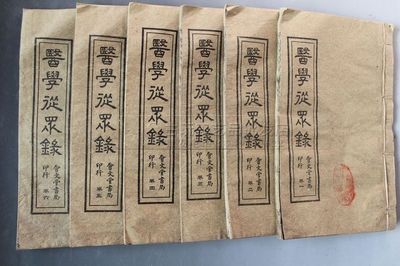 醫學從眾錄
會文堂書局
印行 卷六
醫學從眾錄
會文堂書局
印行 卷五
醫學從眾錄
會文堂書局
印行 卷四
醫學從眾錄
會文堂書局
印行 卷三
醫學從眾錄
會文堂書局
印行 卷二
醫學從眾錄
會文堂書局
印行 卷一